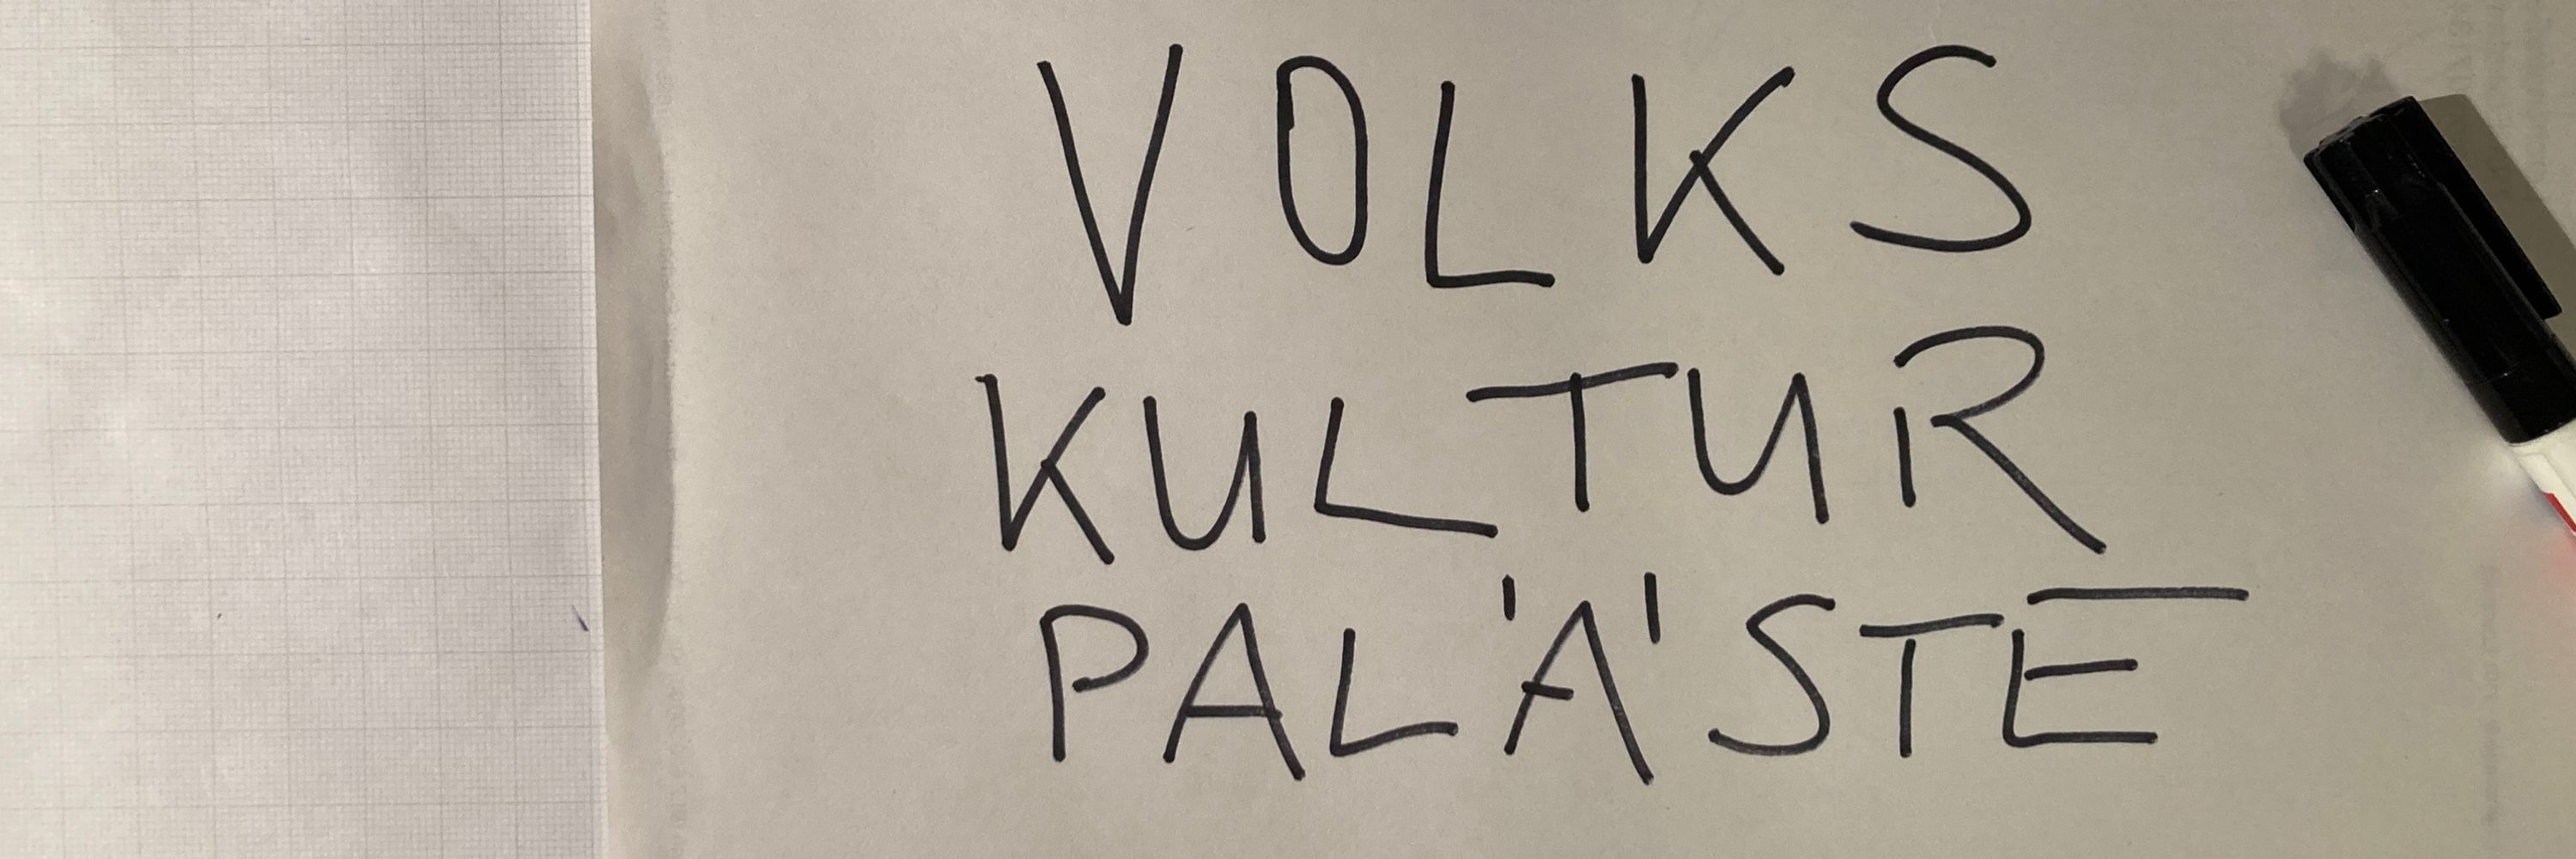 VOLKS
KULTUR
PALÄSTE